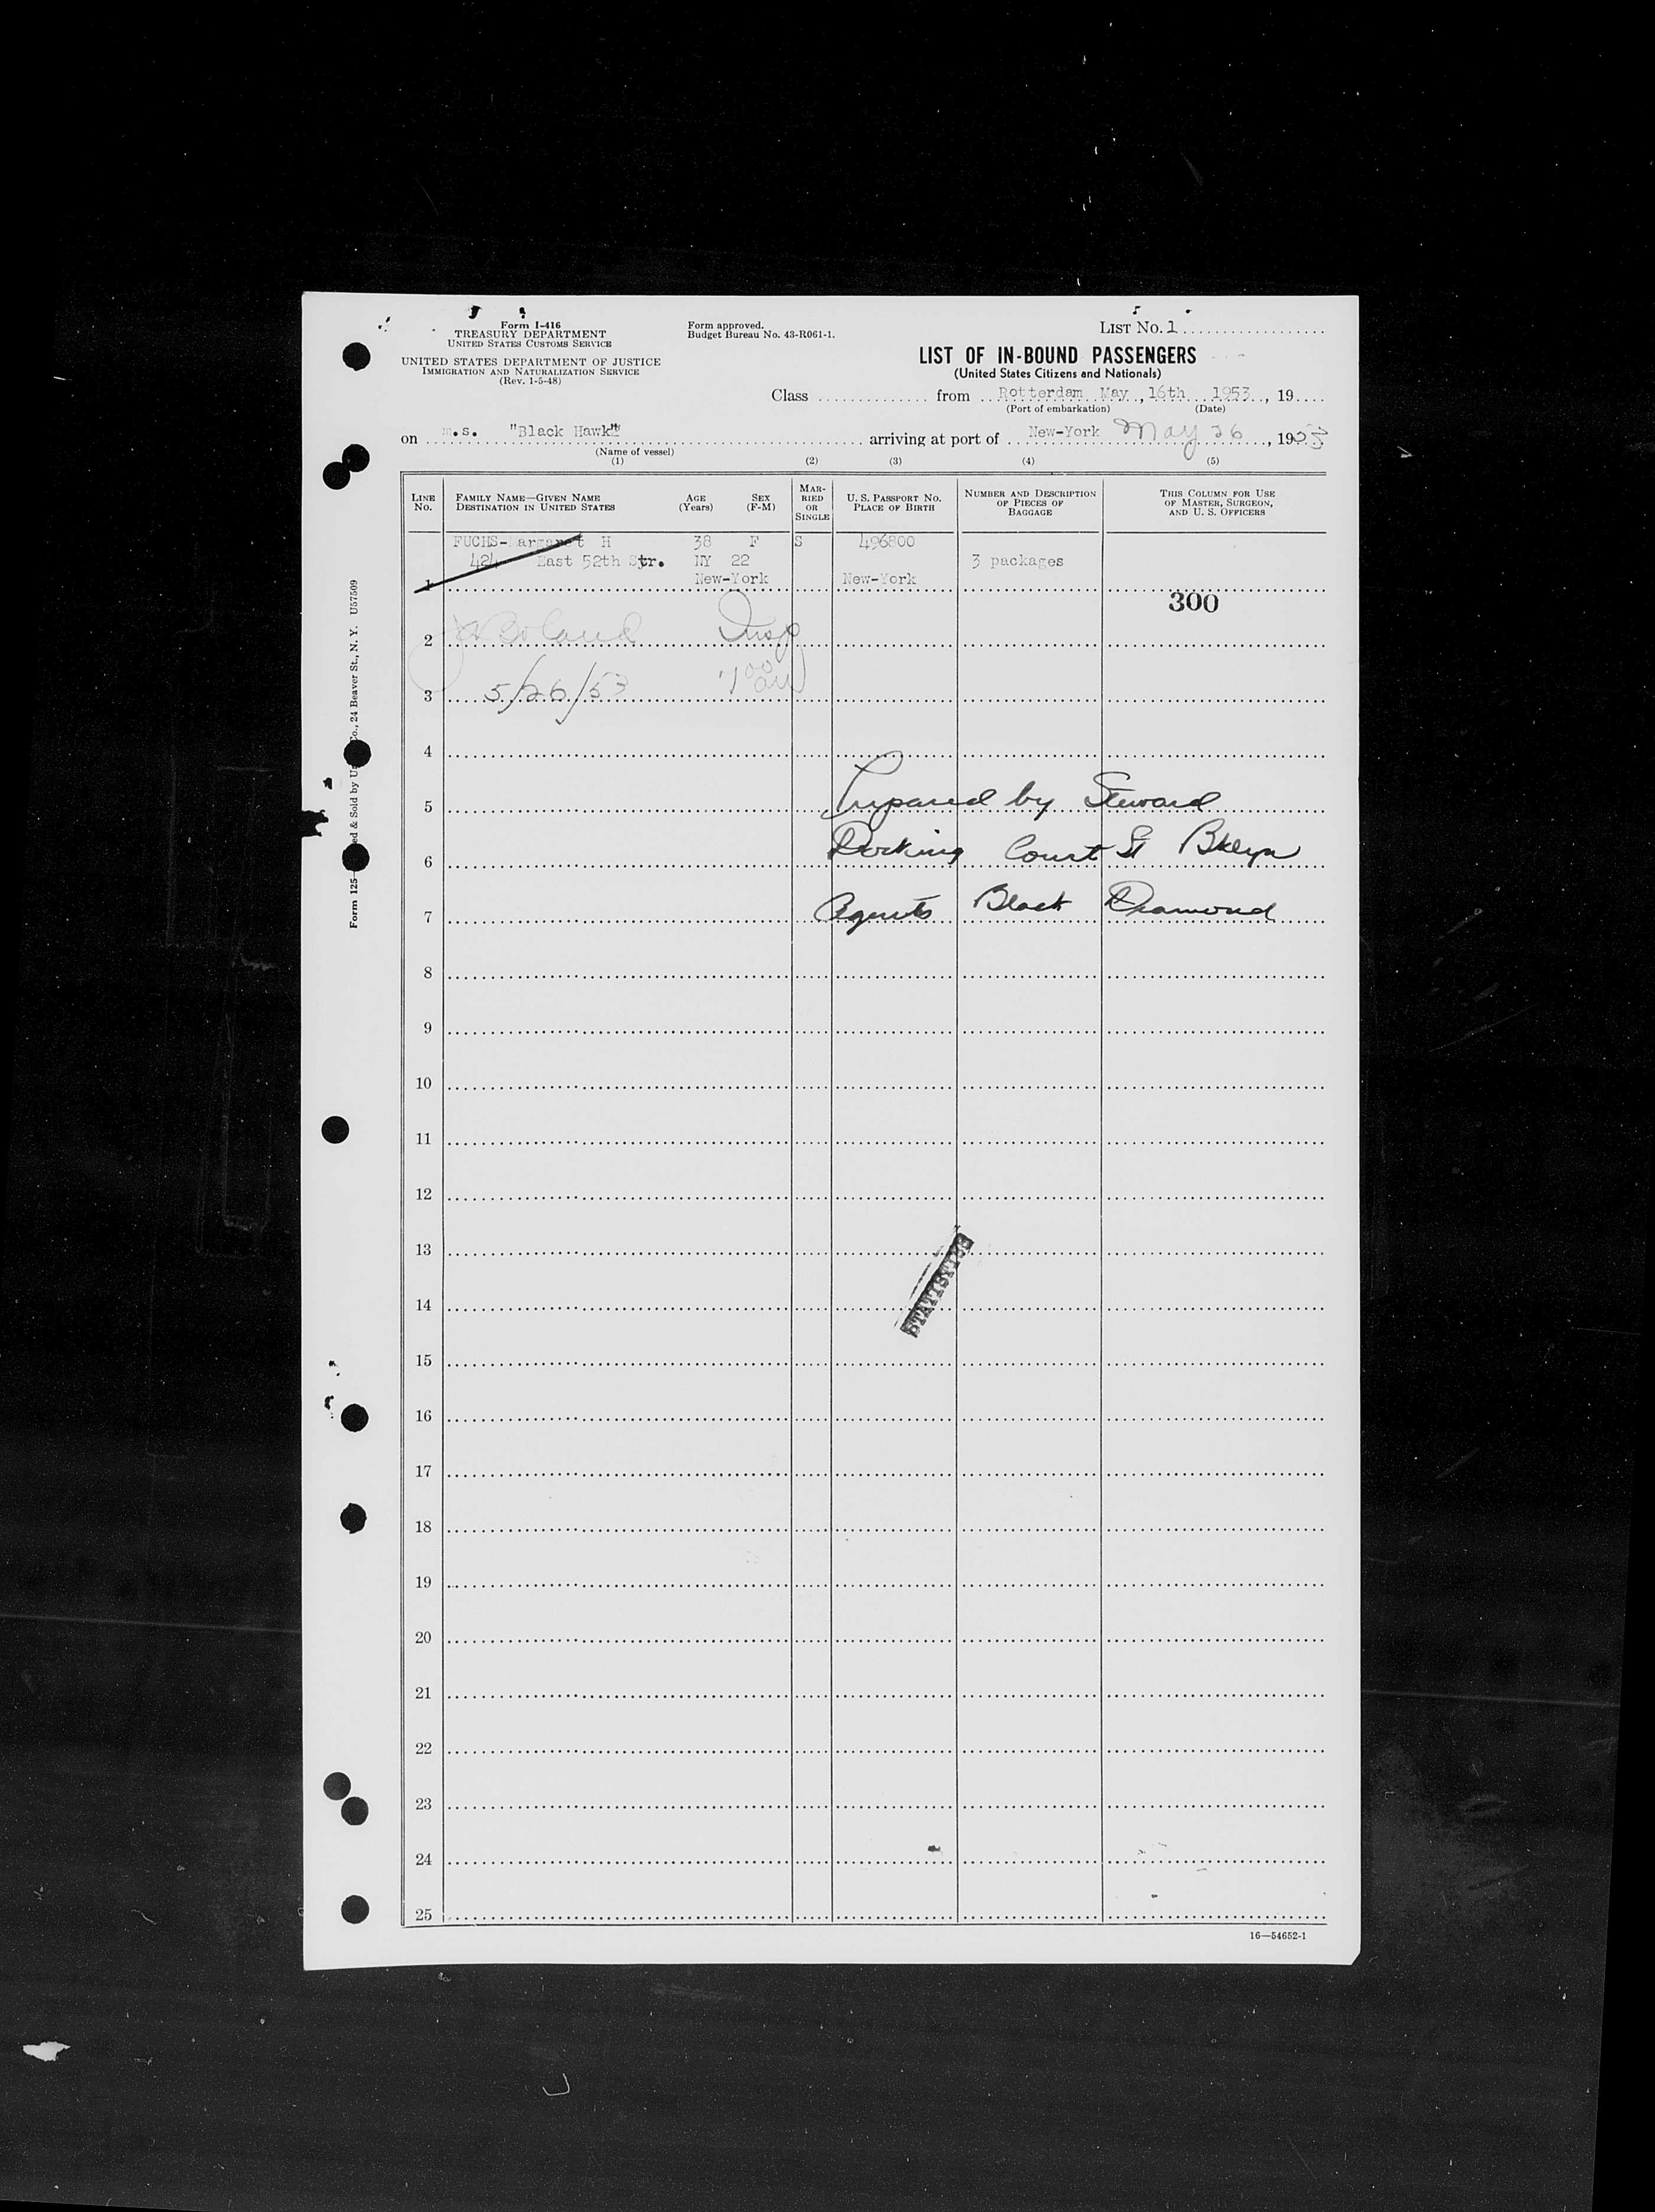 Form I-416
TREASURY DEPARTMENT
UNITED STATES CUSTOMS SERVICE
UNITED STATES DEPARTMENT OF JUSTICE
IMMIGRATION AND NATURALIZATION SERVICE
(Rev. 1-5-48)
Form approved.
Budget Bureau No. 43-R061-1.
LIST NO. 1
LIST OF IN-BOUND PASSENGERS
(United States Citizens and Nationals)
Class from Rotterdam May, 16th 1953, 19
(Port of embarkation) (Date)
on m.s. "Black Hawk" arriving at port of New-York May 26, 1953
(Name of vessel)
(1) (2) (3) (4) (5)
LINE NO. FAMILY NAME—GIVEN NAME DESTINATION IN UNITED STATES AGE (Years) SEX (F-M) MARRIED OR SINGLE U. S. PASSPORT NO. PLACE OF BIRTH NUMBER AND DESCRIPTION OF PIECES OF BAGGAGE THIS COLUMN FOR USE OF MASTER, SURGEON, AND U. S. OFFICERS
FUCHS-Margaret H 38 F S 496800
424 East 52th Str. NY 22 3 packages
1 New-York New-York
300
2 Boland Insp
3 5/26/53
4
5 Prepared by Steward
6 Docking Court St Bklyn
7 Agents Black Diamond
8
9
10
11
12
13
STATISTICS
14
15
16
17
18
19
20
21
22
23
24
25
16—54652-1
Form 125 ed & Sold by Co., 24 Beaver St., N. Y. U57509